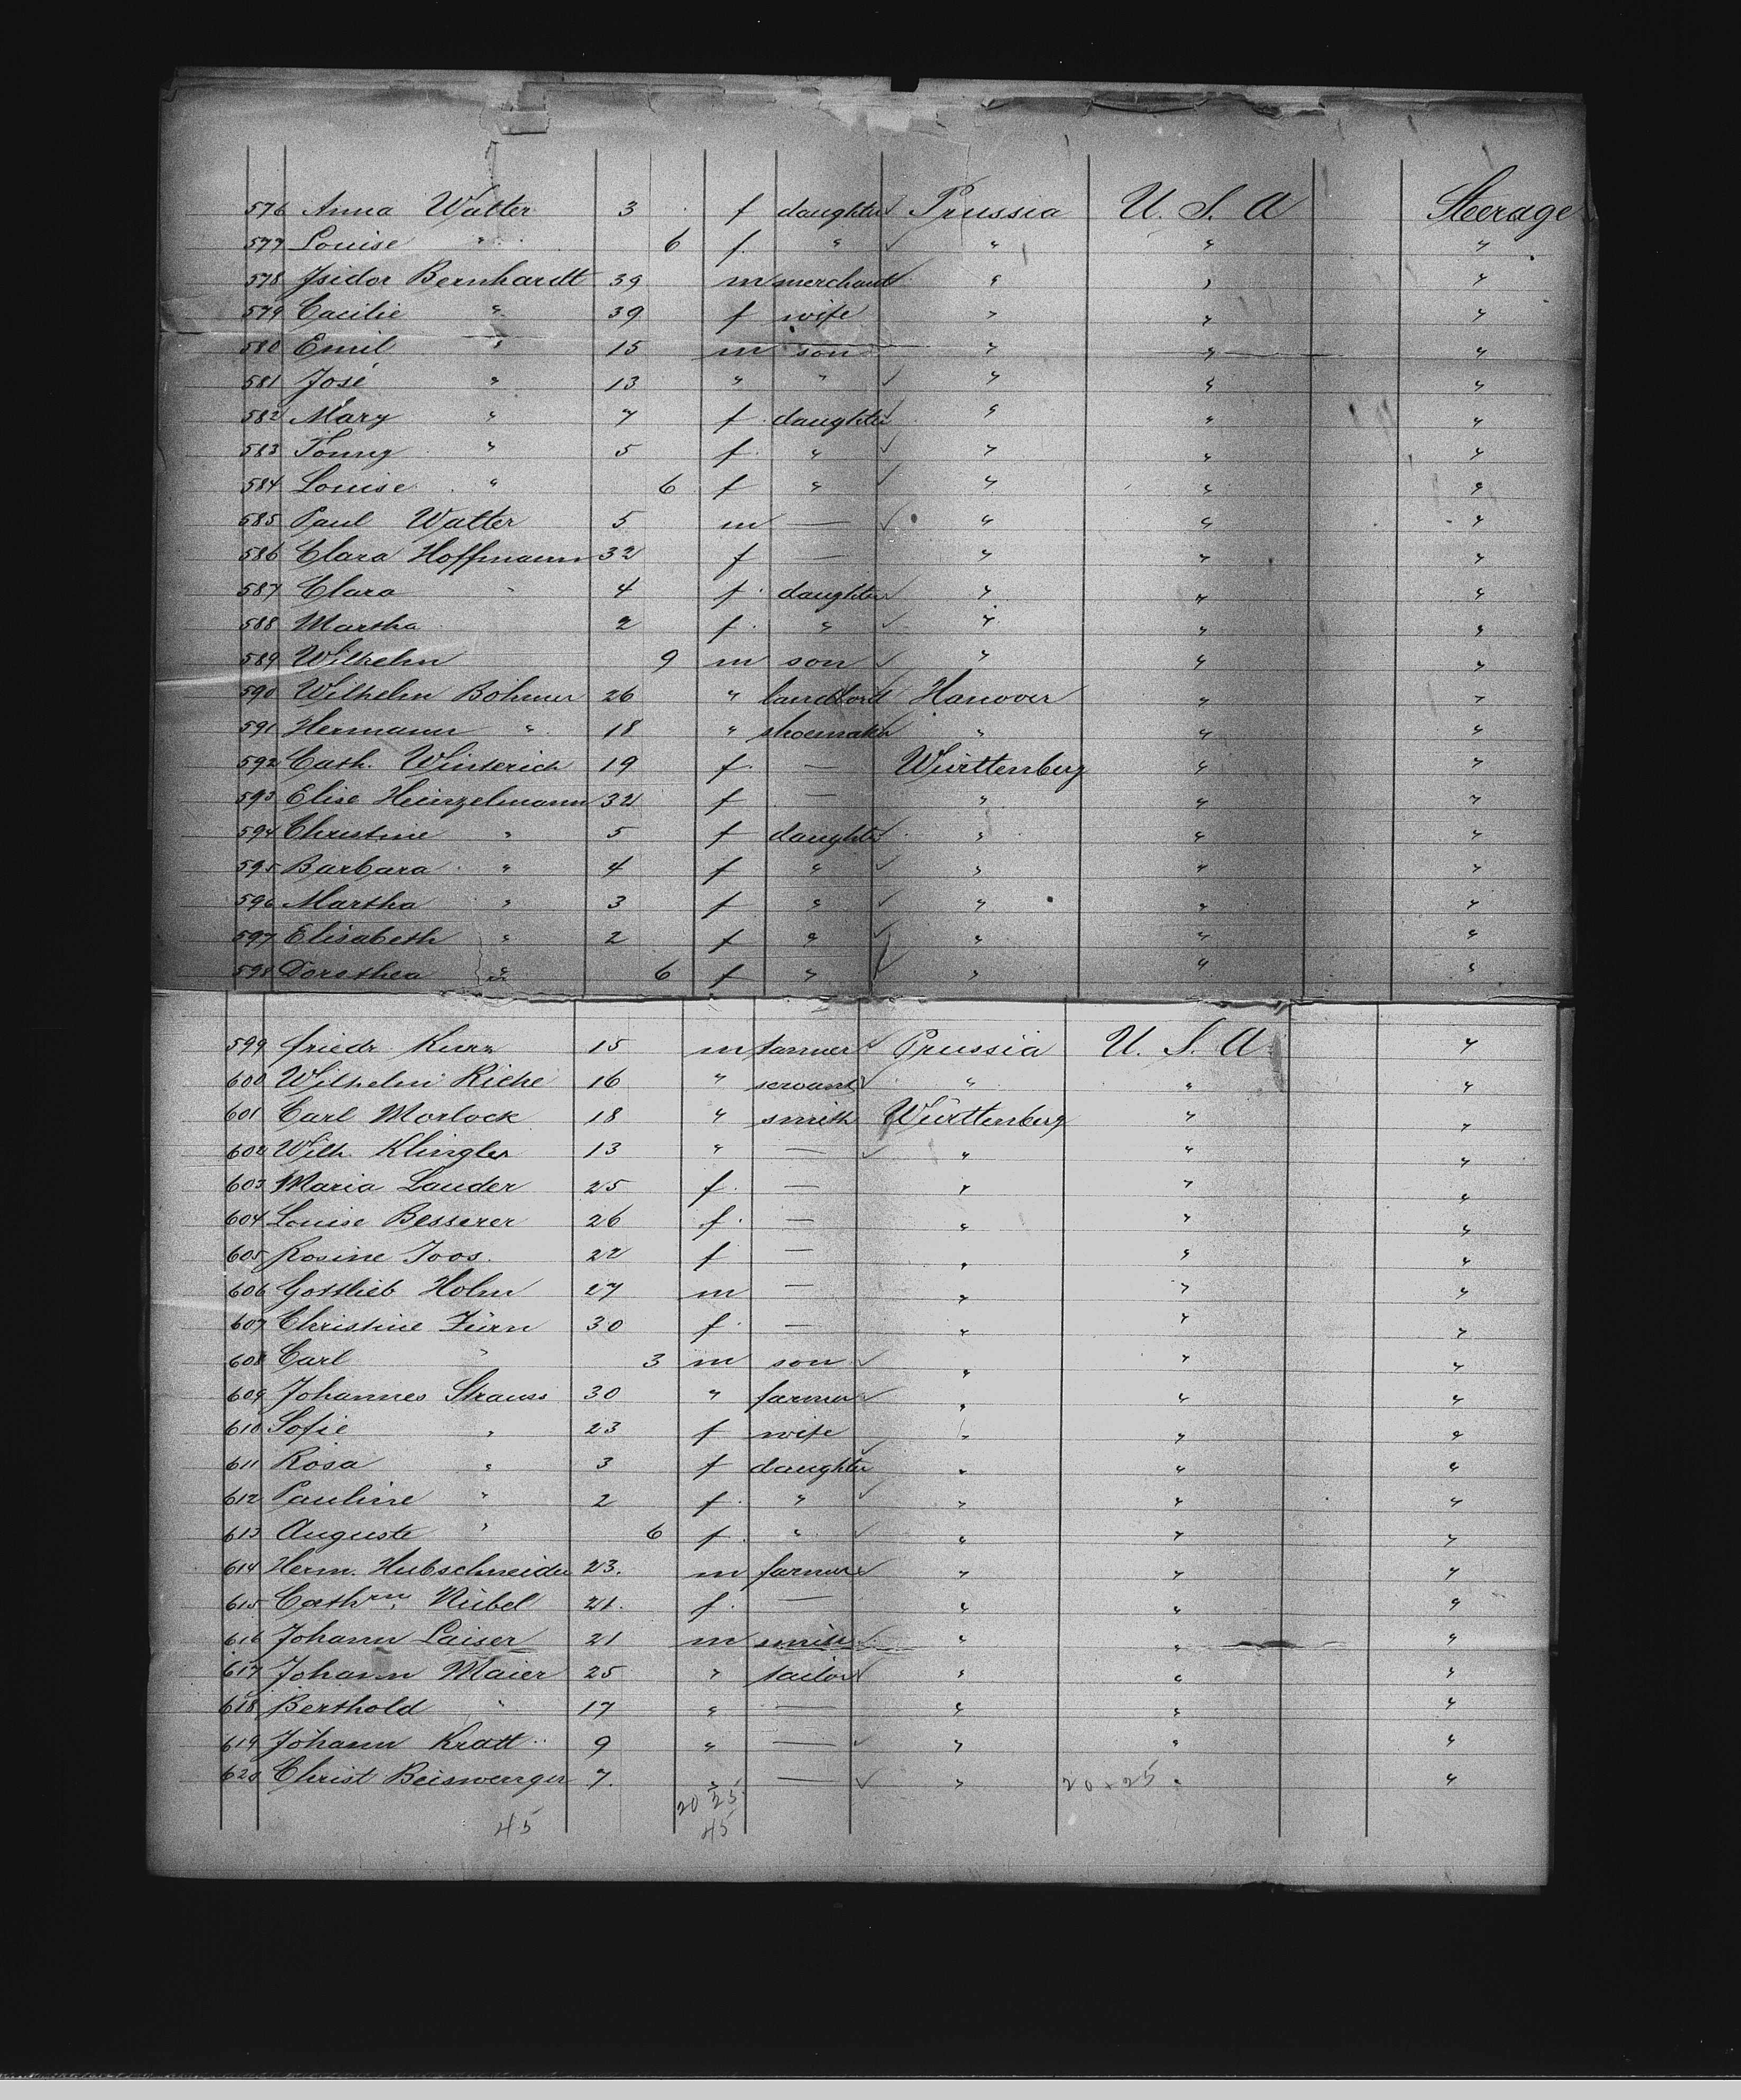 576 Anna Walter 3 f daughter Prussia U. S. A Steerage
577 Louise " 6 f. " " " "
578 Isidor Bernhardt 39 m merchant " " "
579 Cacilie " 39 f wife " " "
580 Emil " 15 m son " " "
581 José " 13 " " " " "
582 Mary " 7 f daughter " " "
583 Tonny " 5 f. " " " "
584 Louise " 6 f " " " "
585 Paul Walter 5 m — " " "
586 Clara Hoffmann 32 f — " " "
587 Clara " 4 f. daughter " " "
588 Martha 2 f. " " " "
589 Wilhelm 9 m son " " "
590 Wilhelm Böhmer 26 " landlord Hanover " "
591 Hermann " 18 " shoemaker " " "
592 Cath. Winterich 19 f. — Württenberg " "
593 Elise Heinzelmann 32 f — " " "
594 Christine " 5 f daughter " " "
595 Barbara " 4 f " " " "
596 Martha " 3 f " " " "
597 Elisabeth " 2 f " " " "
598 Dorothea " 6 f " " " "
599 Friedr. Kurz 15 m farmer Prussia U. S. A "
600 Wilhelm Riehe 16 " servant " " "
601 Carl Morlock 18 " smith Württenberg " "
602 Wilh. Klingler 13 " — " " "
603 Maria Lauder 25 f. — " " "
604 Louise Besserer 26 f. — " " "
605 Rosine Joos. 22 f — " " "
606 Gottlieb Holm 27 m — " " "
607 Christine Zürn 30 f. — " " "
608 Carl " 3 m son " " "
609 Johannes Strauss 30 " farmer " " "
610 Sofie " 23 f wife " " "
611 Rosa " 3 f daughter " " "
612 Pauline " 2 f. " " " "
613 Auguste " 6 f. " " " "
614 Herm. Hubschneider 23. m farmer " " "
615 Cathrn. Nübel 21. f. — " " "
616 Johann Laiser 21 m smith " " "
617 Johann Maier 25 " tailor " " "
618 Berthold " 17 " — " " "
619 Johann Kratt 9 " — " " "
620 Christ Beiswenger 7. " — " 20 + 25 " "
20 25
45 45